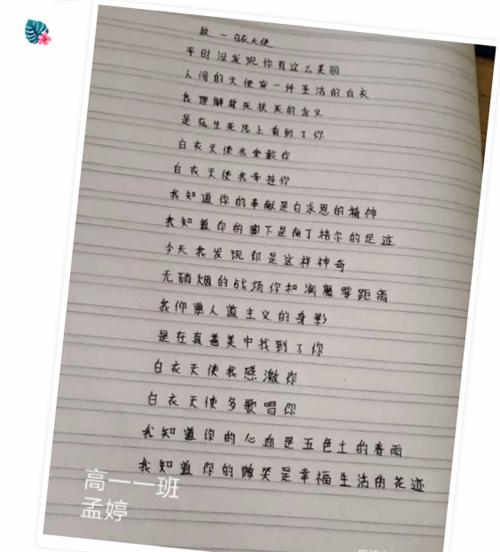 致一白衣天使
平时没发现你有这么美丽
人间的天使穿一件圣洁的白衣
我理解救死扶死的含义
是在生死线上看到了你
白衣天使我爱戴你
白衣天使我牵挂你
我知道你的奉献是白求恩的精神
我知道你的脚下是南丁格尔的足迹
今天我发现你是这样神奇
无硝烟的战场你和病魔零距离
我仰慕人道主义的身影
是在真善美中找到了你
白衣天使我感激你
白衣天使多歌唱你
我知道你的心血是五色土的春雨
我知道你的微笑是幸福生活的花迹
高一一班
孟婷